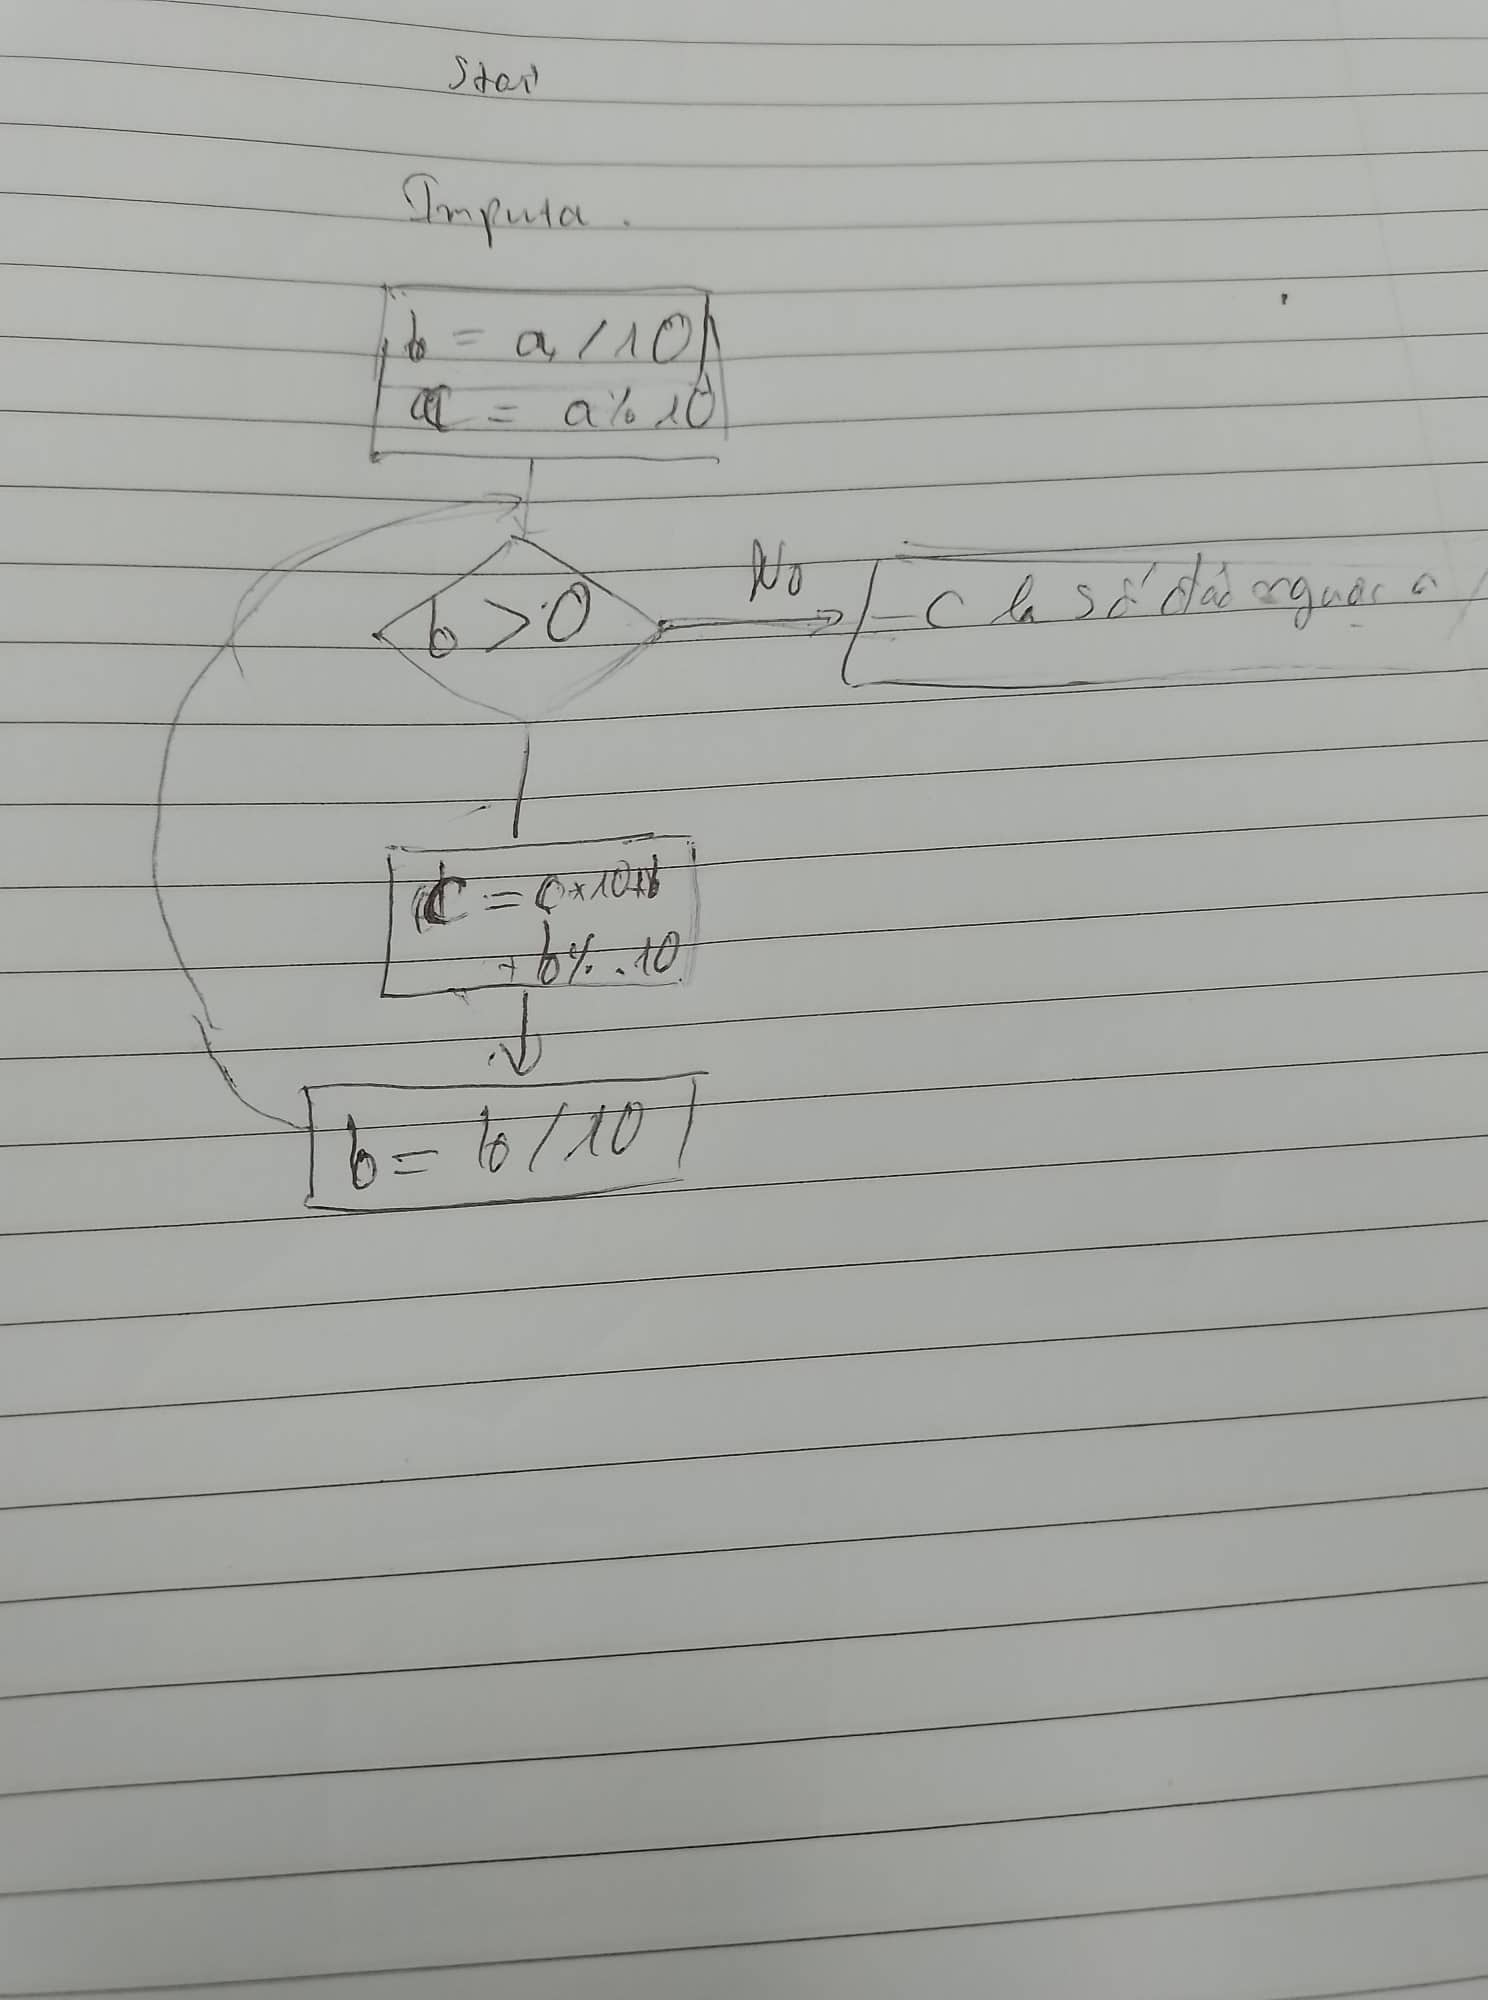 Start
Imputa.
b = a / 10
c = a % 10
b > 0
No
C là số đảo ngược a
c = c * 10
+ b % 10
b = b / 10